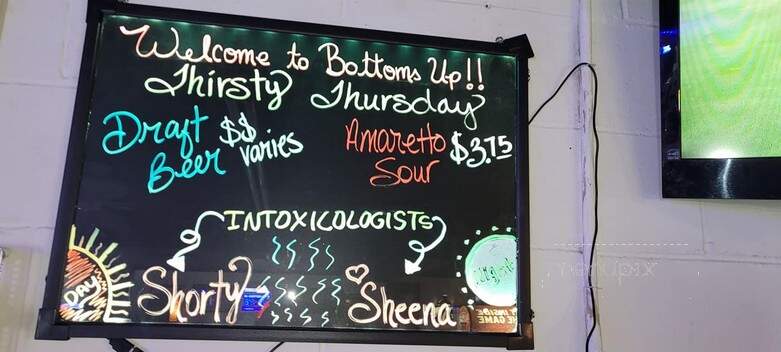 Welcome to Bottoms Up!!
Thirsty Thursday
Draft Beer $$ varies
Amaretto Sour $3.75
INTOXICOLOGISTS
DAY
Shorty
Sheena
Night